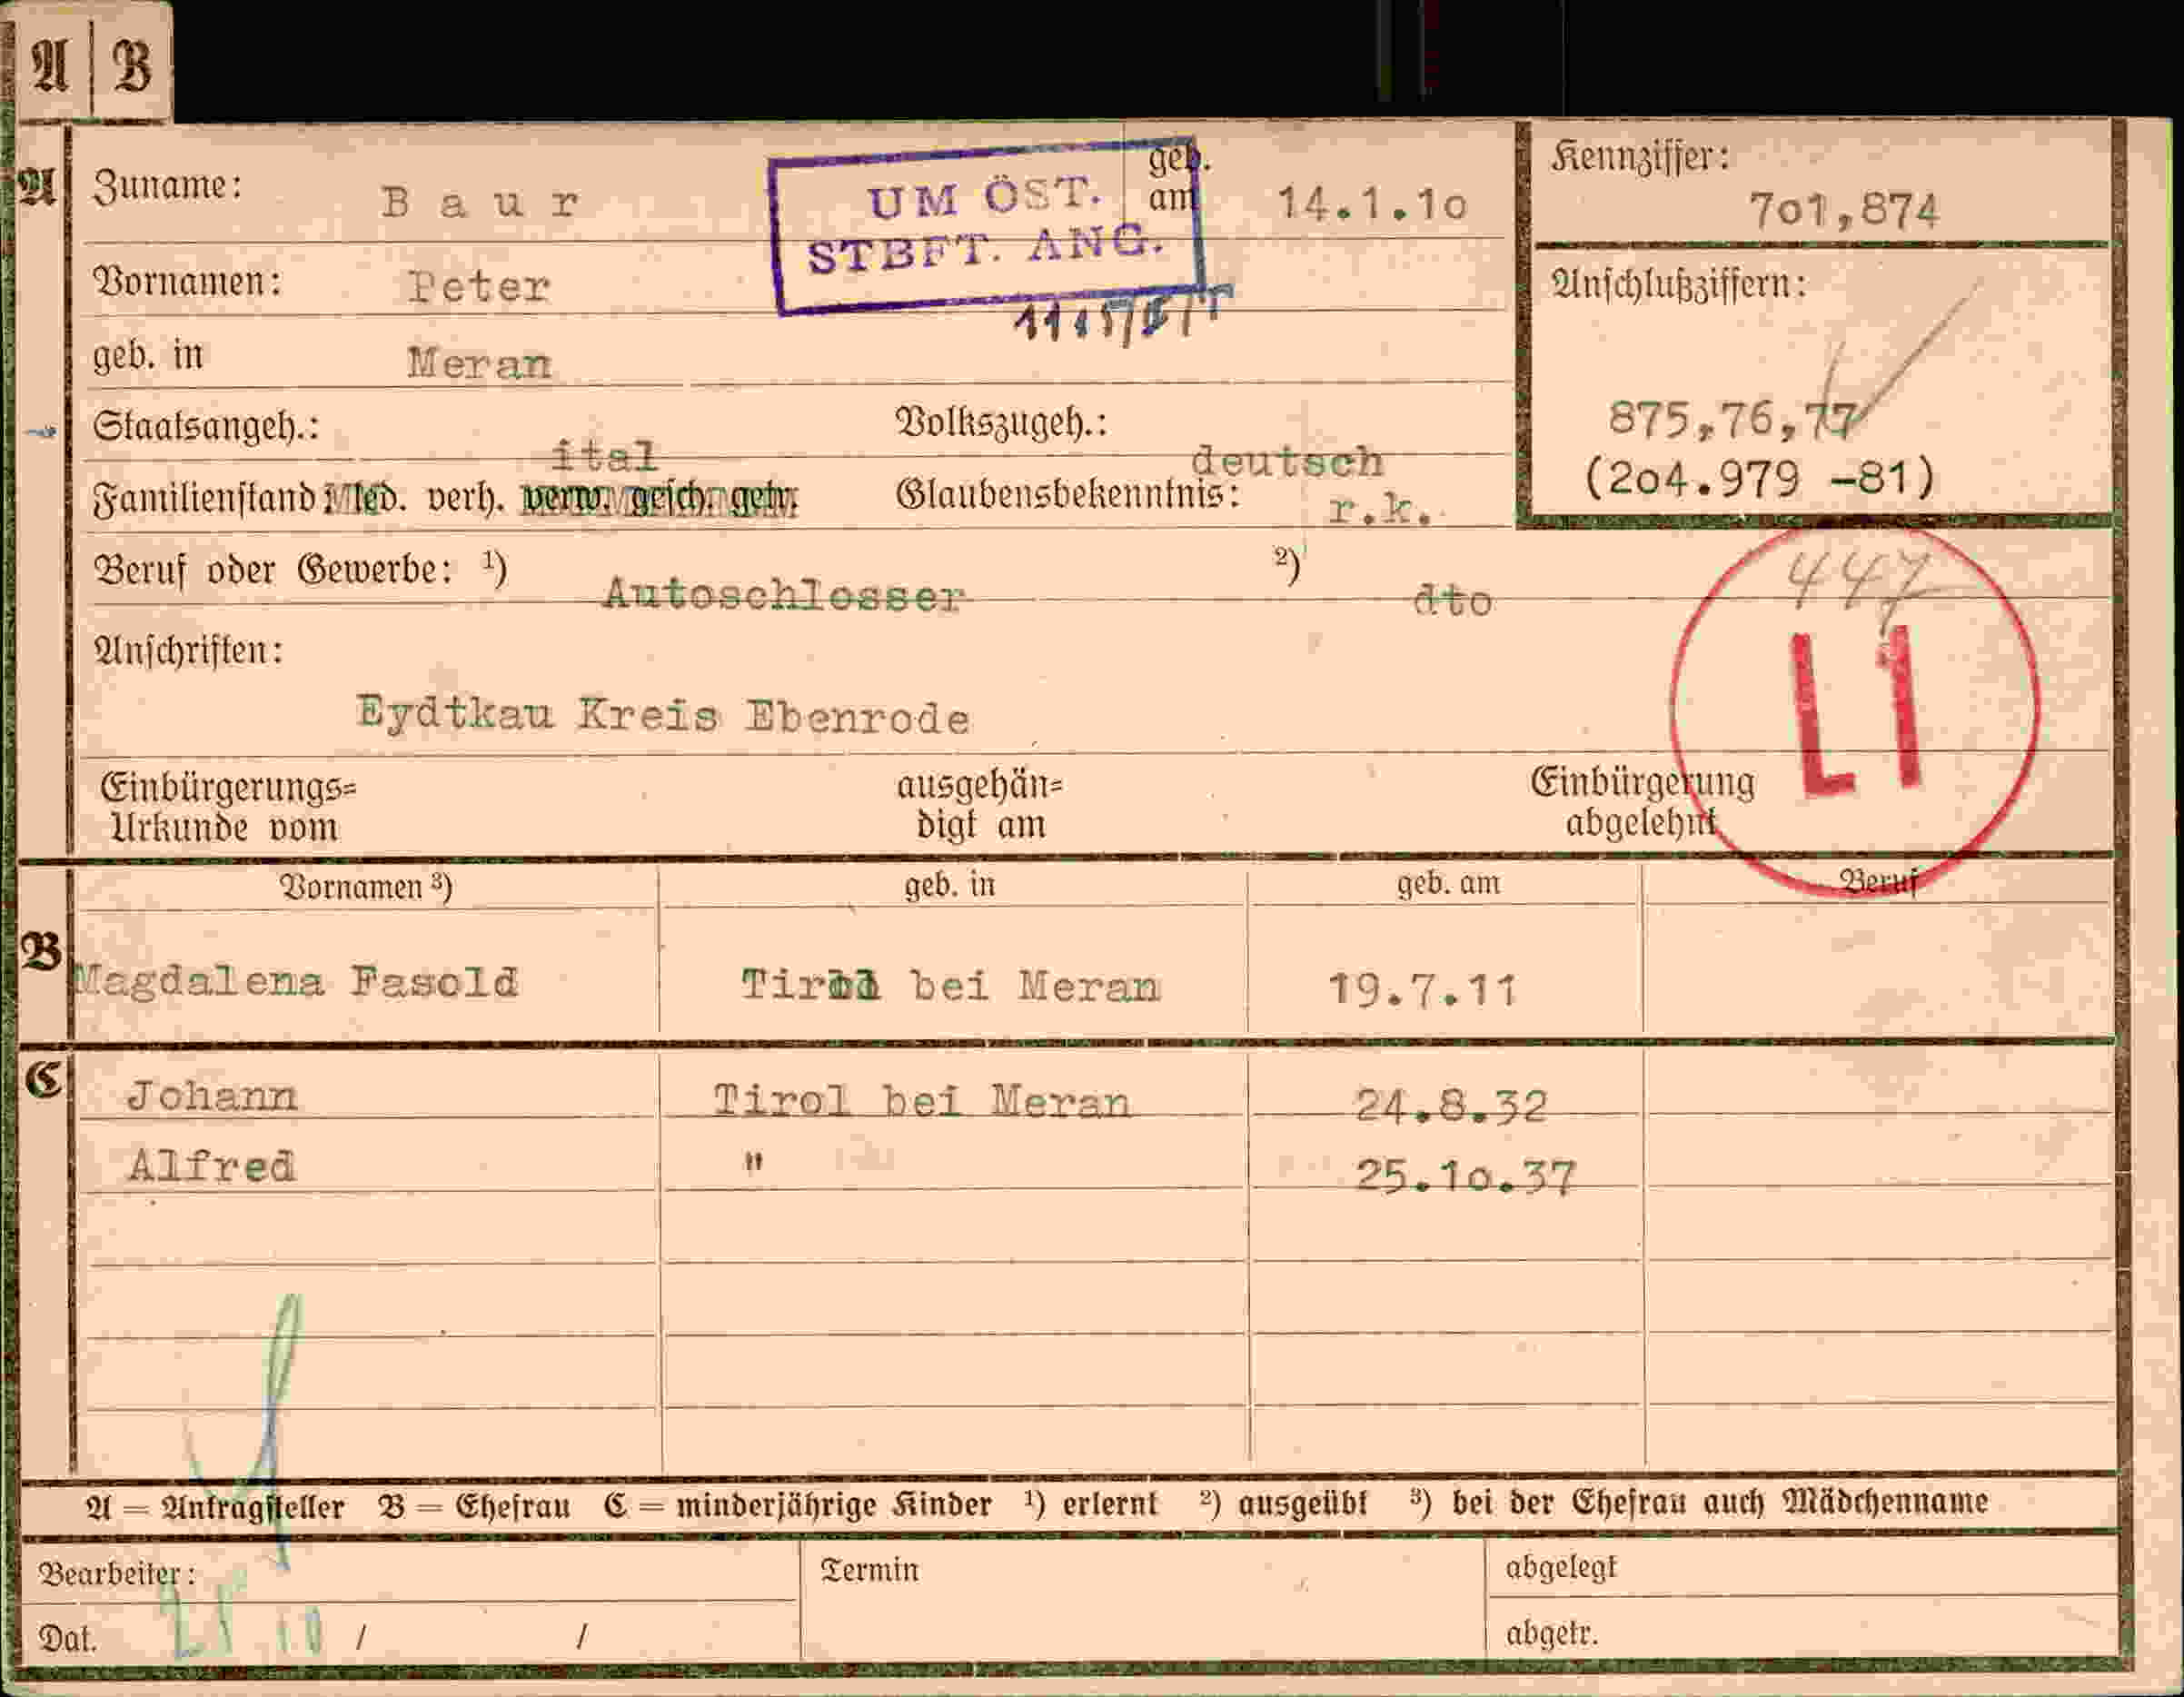 A | B
A Zuname: Baur geb. am 14.1.1o
UM ÖST.
STBFT. ANG.
Kennziffer:
7o1,874
Vornamen: Peter
Anschlußziffern:
geb. in Meran
875,76,77
(2o4.979 -81)
Staatsangeh.: ital Volkszugeh.: deutsch
Familienstand led. verh. verw. gesch. getr. Glaubensbekenntnis: r.k.
Beruf oder Gewerbe: ¹) Autoschlosser ²) dto
447
L1
Anschriften:
Eydtkau Kreis Ebenrode
Einbürgerungs= ausgehän= Einbürgerung
Urkunde vom digt am abgelehnt
Vornamen ³) geb. in geb. am Beruf
B Magdalena Fasold bei Meran 19.7.11
C Johann Tirol bei Meran 24.8.32
Alfred " 25.1o.37
A = Antragsteller B = Ehefrau C = minderjährige Kinder ¹) erlernt ²) ausgeübt ³) bei der Ehefrau auch Mädchenname
Bearbeiter: Termin abgelegt
Dat. 25 10 / / abgetr.